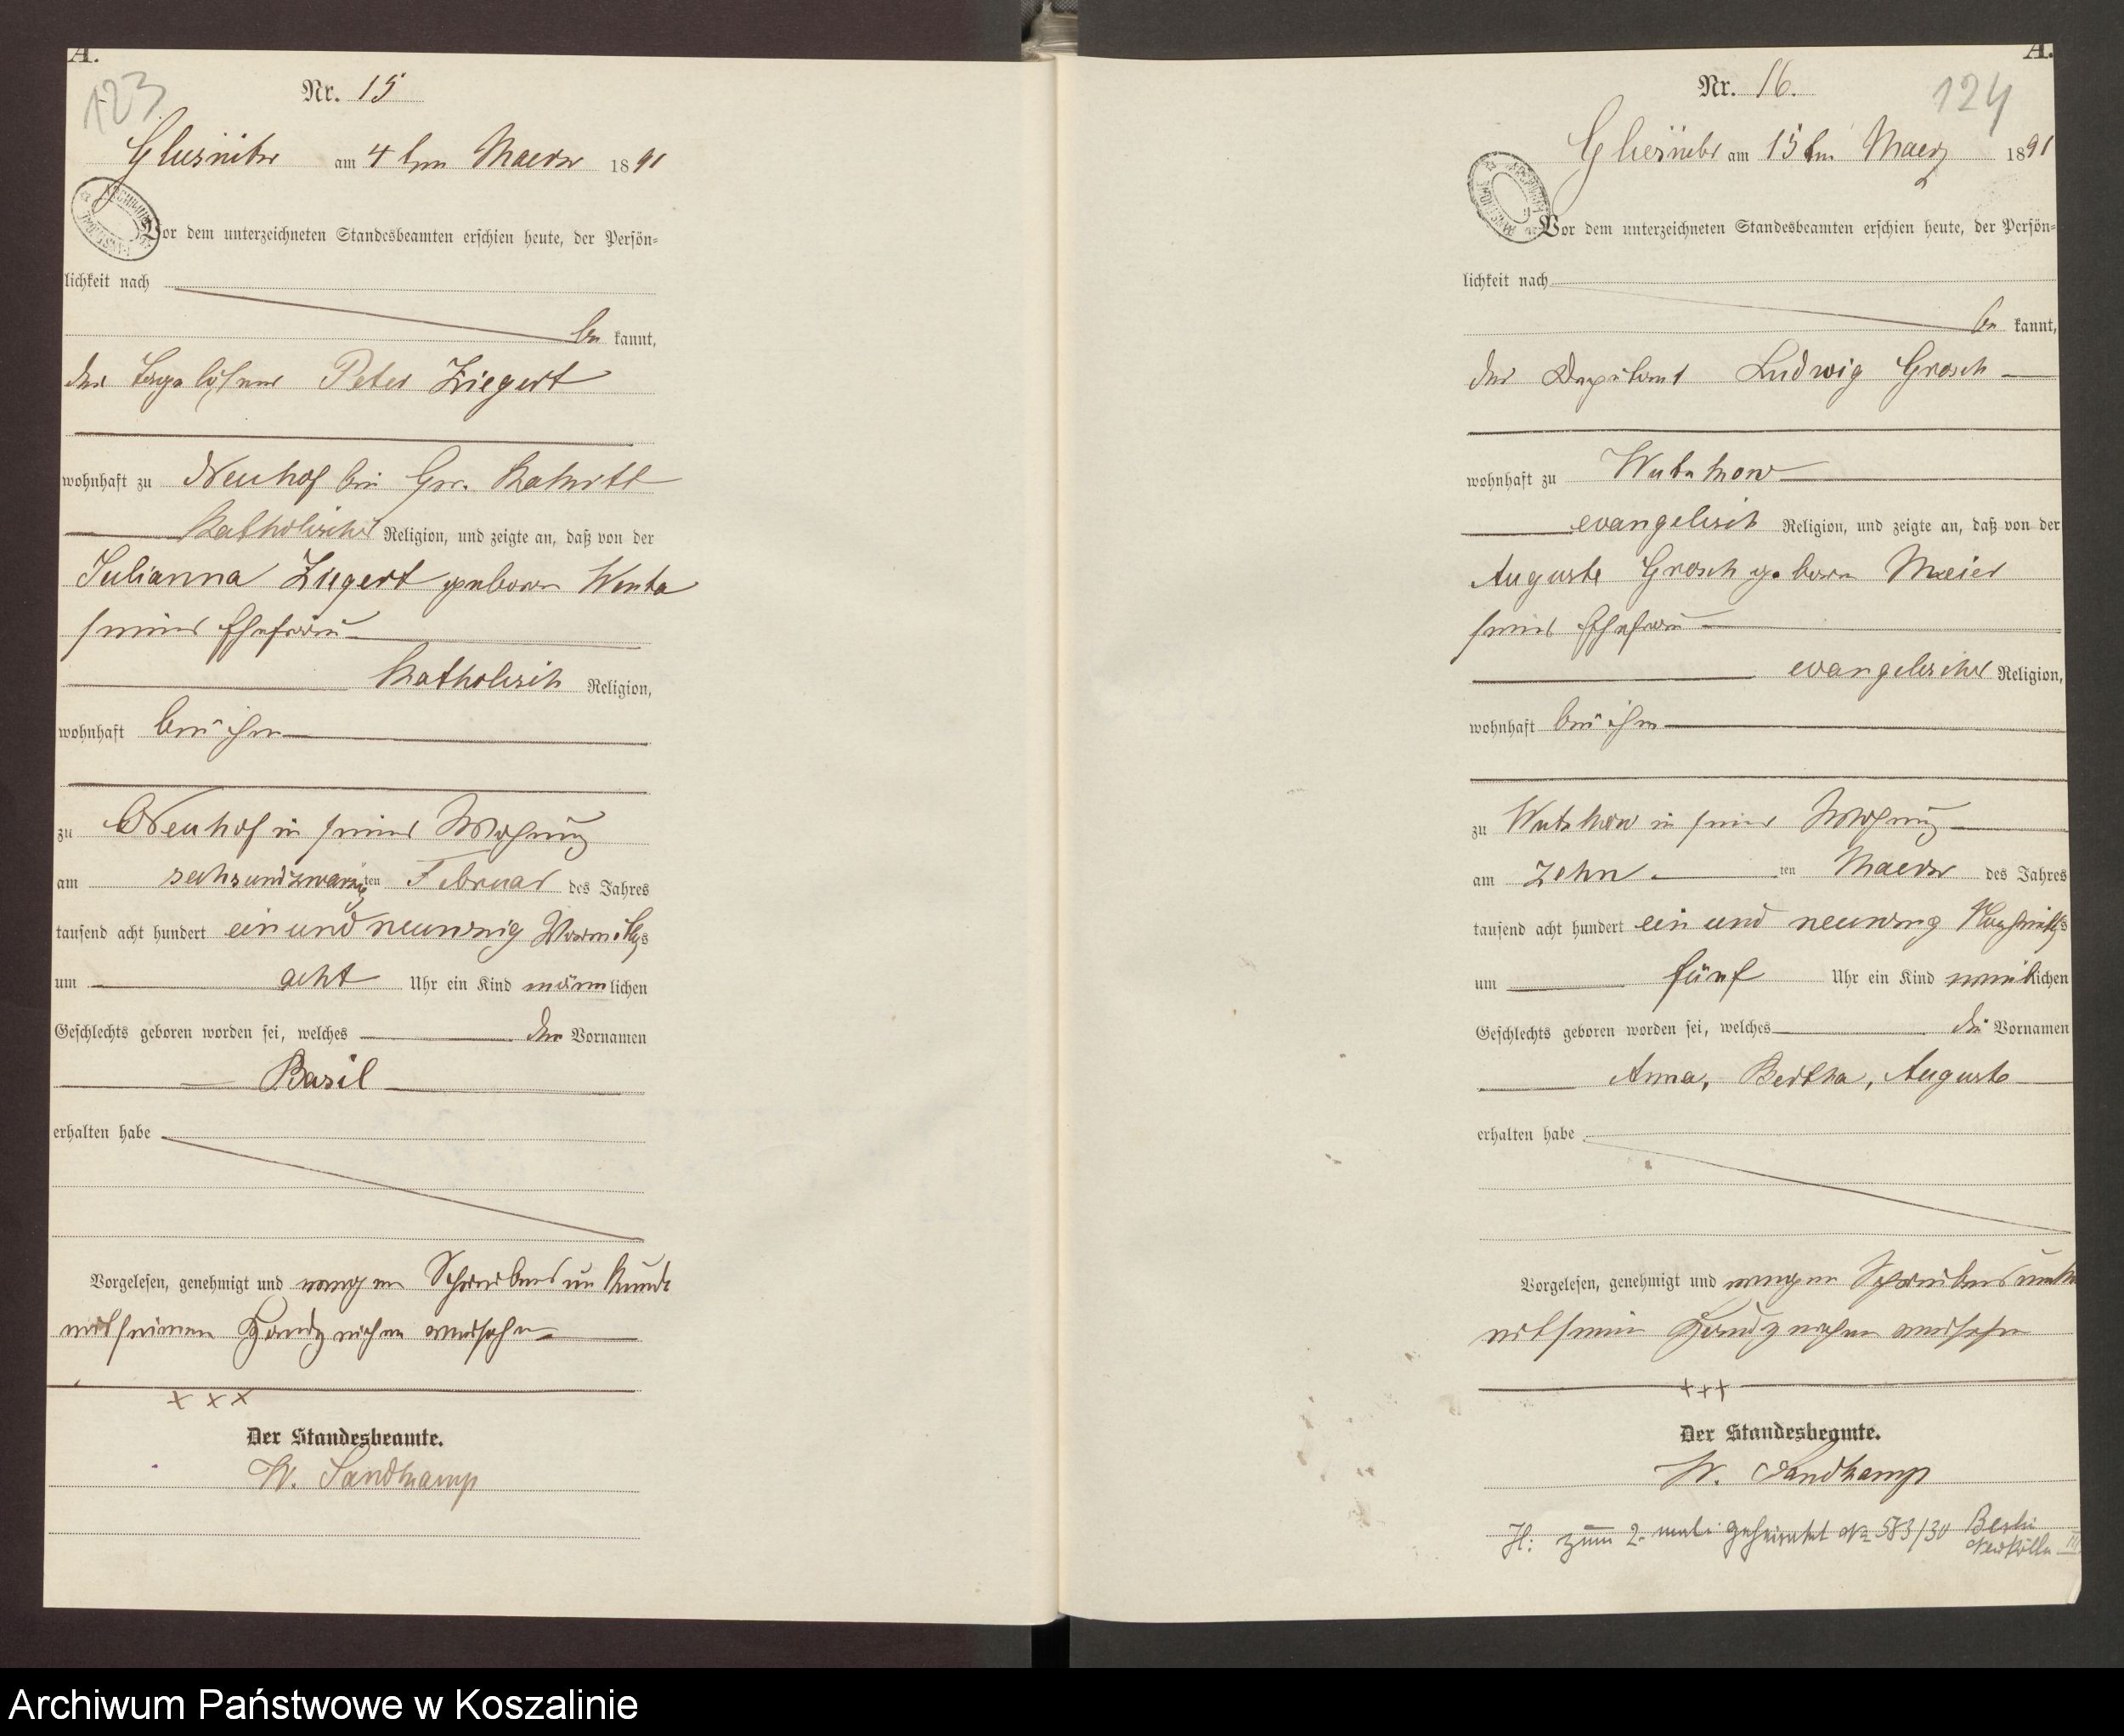 A.
123
Nr. 15
am 4 ten Maerz 1891
Vor dem unterzeichneten Standesbeamten erschien heute, der Persön=
lichkeit nach
be kannt,
der Tagelöhner Peter Ziegert
wohnhaft zu Neuhof bei Gr.
katholischer Religion, und zeigte an, daß von der
Julianna Ziegert geboren Wenta
seiner Ehefrau
katholisch Religion,
wohnhaft bei ihm
zu Neuhof in seiner Wohnung
am sechsundzwanzig ten Februar des Jahres
tausend acht hundert ein und neunzig Vormittags
um acht Uhr ein Kind männlichen
Geschlechts geboren worden sei, welches den Vornamen
Basil
erhalten habe
Vorgelesen, genehmigt und wegen Schreibens unkunde
mit seinem Handzeichen versehen
× × ×
Der Standesbeamte.
W. Sandkamp
A.
124
Nr. 16.
am 15 ten Maerz 1891
Vor dem unterzeichneten Standesbeamten erschien heute, der Persön=
lichkeit nach
be kannt,
der Deputant Ludwig Grosch
wohnhaft zu Wutzkow
evangelisch Religion, und zeigte an, daß von der
Auguste Grosch geboren Meier
seiner Ehefrau
evangelischer Religion,
wohnhaft bei ihm
zu Wutzkow in seiner Wohnung
am zehn ten Maerz des Jahres
tausend acht hundert ein und neunzig Nachmittags
um fünf Uhr ein Kind weiblichen
Geschlechts geboren worden sei, welches die Vornamen
Anna, Bertha, Auguste
erhalten habe
Vorgelesen, genehmigt und wegen Schreibens
mit seinem Handzeichen versehen
+++
Der Standesbeamte.
W. Sandkamp
H: zum 2. mal geheiratet No 583/30 Berlin
Neukölln III
Archiwum Państwowe w Koszalinie